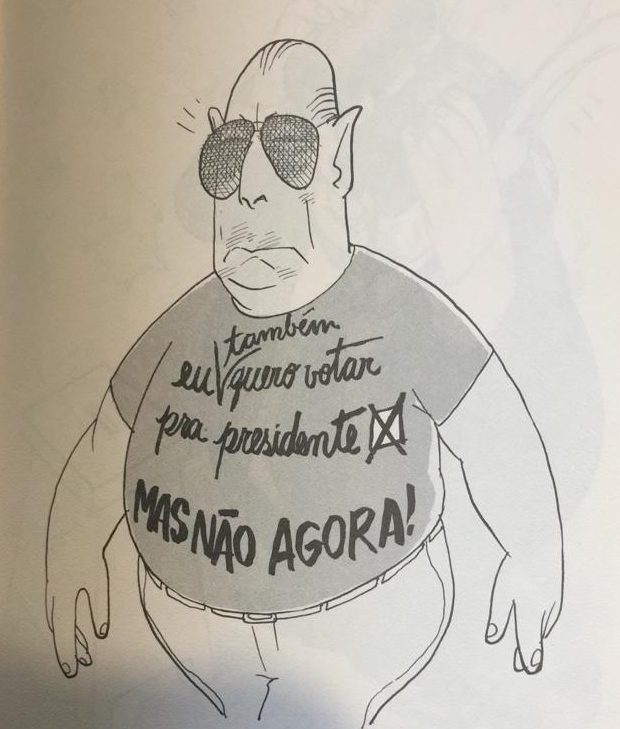 também
eu quero votar
pra presidente
MAS NÃO AGORA!